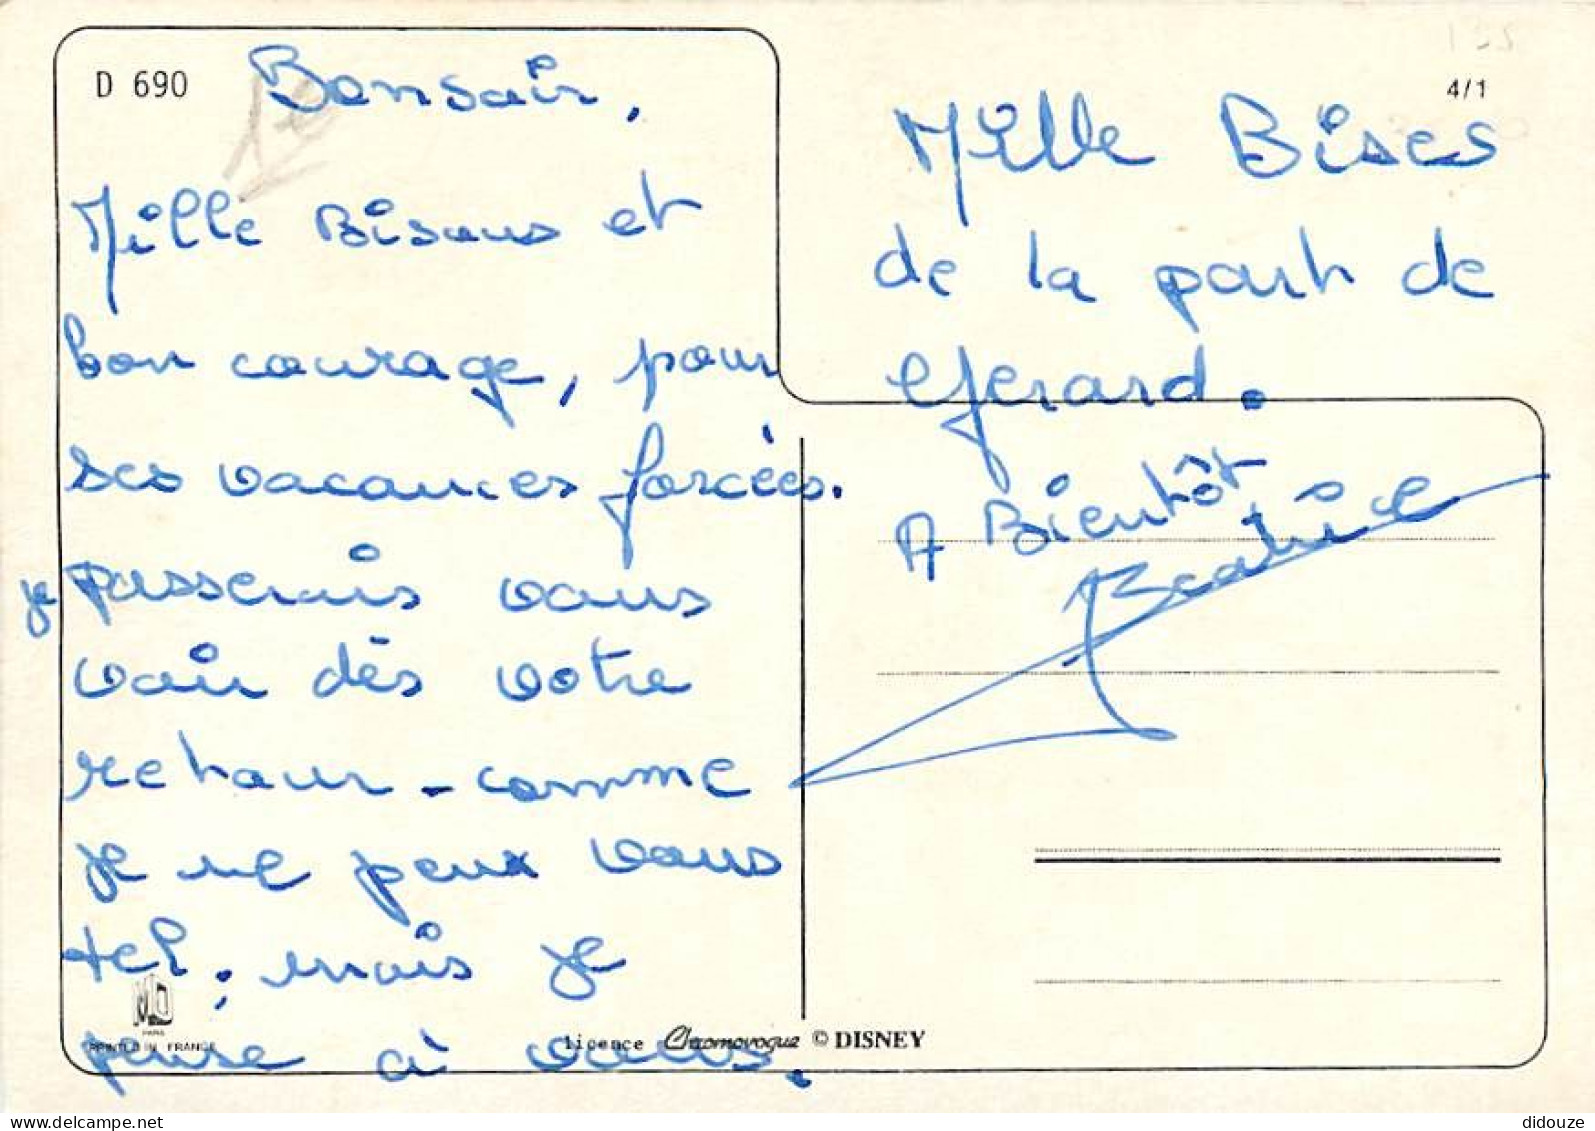 D 690
Bonsoir,
Mille Bisous et
bon courage, pour
ses vacances forcées.
je passerais vous
voir dès votre
retour - comme
je ne peux vous
tel, mais je
pense à vous.
4/1
Mille Bises
de la part de
Gerard.
A Bientôt,
Beatrice
M.D
PARIS
PRINTED IN FRANCE
licence Chromovogue © DISNEY
delcampe.net
didouze